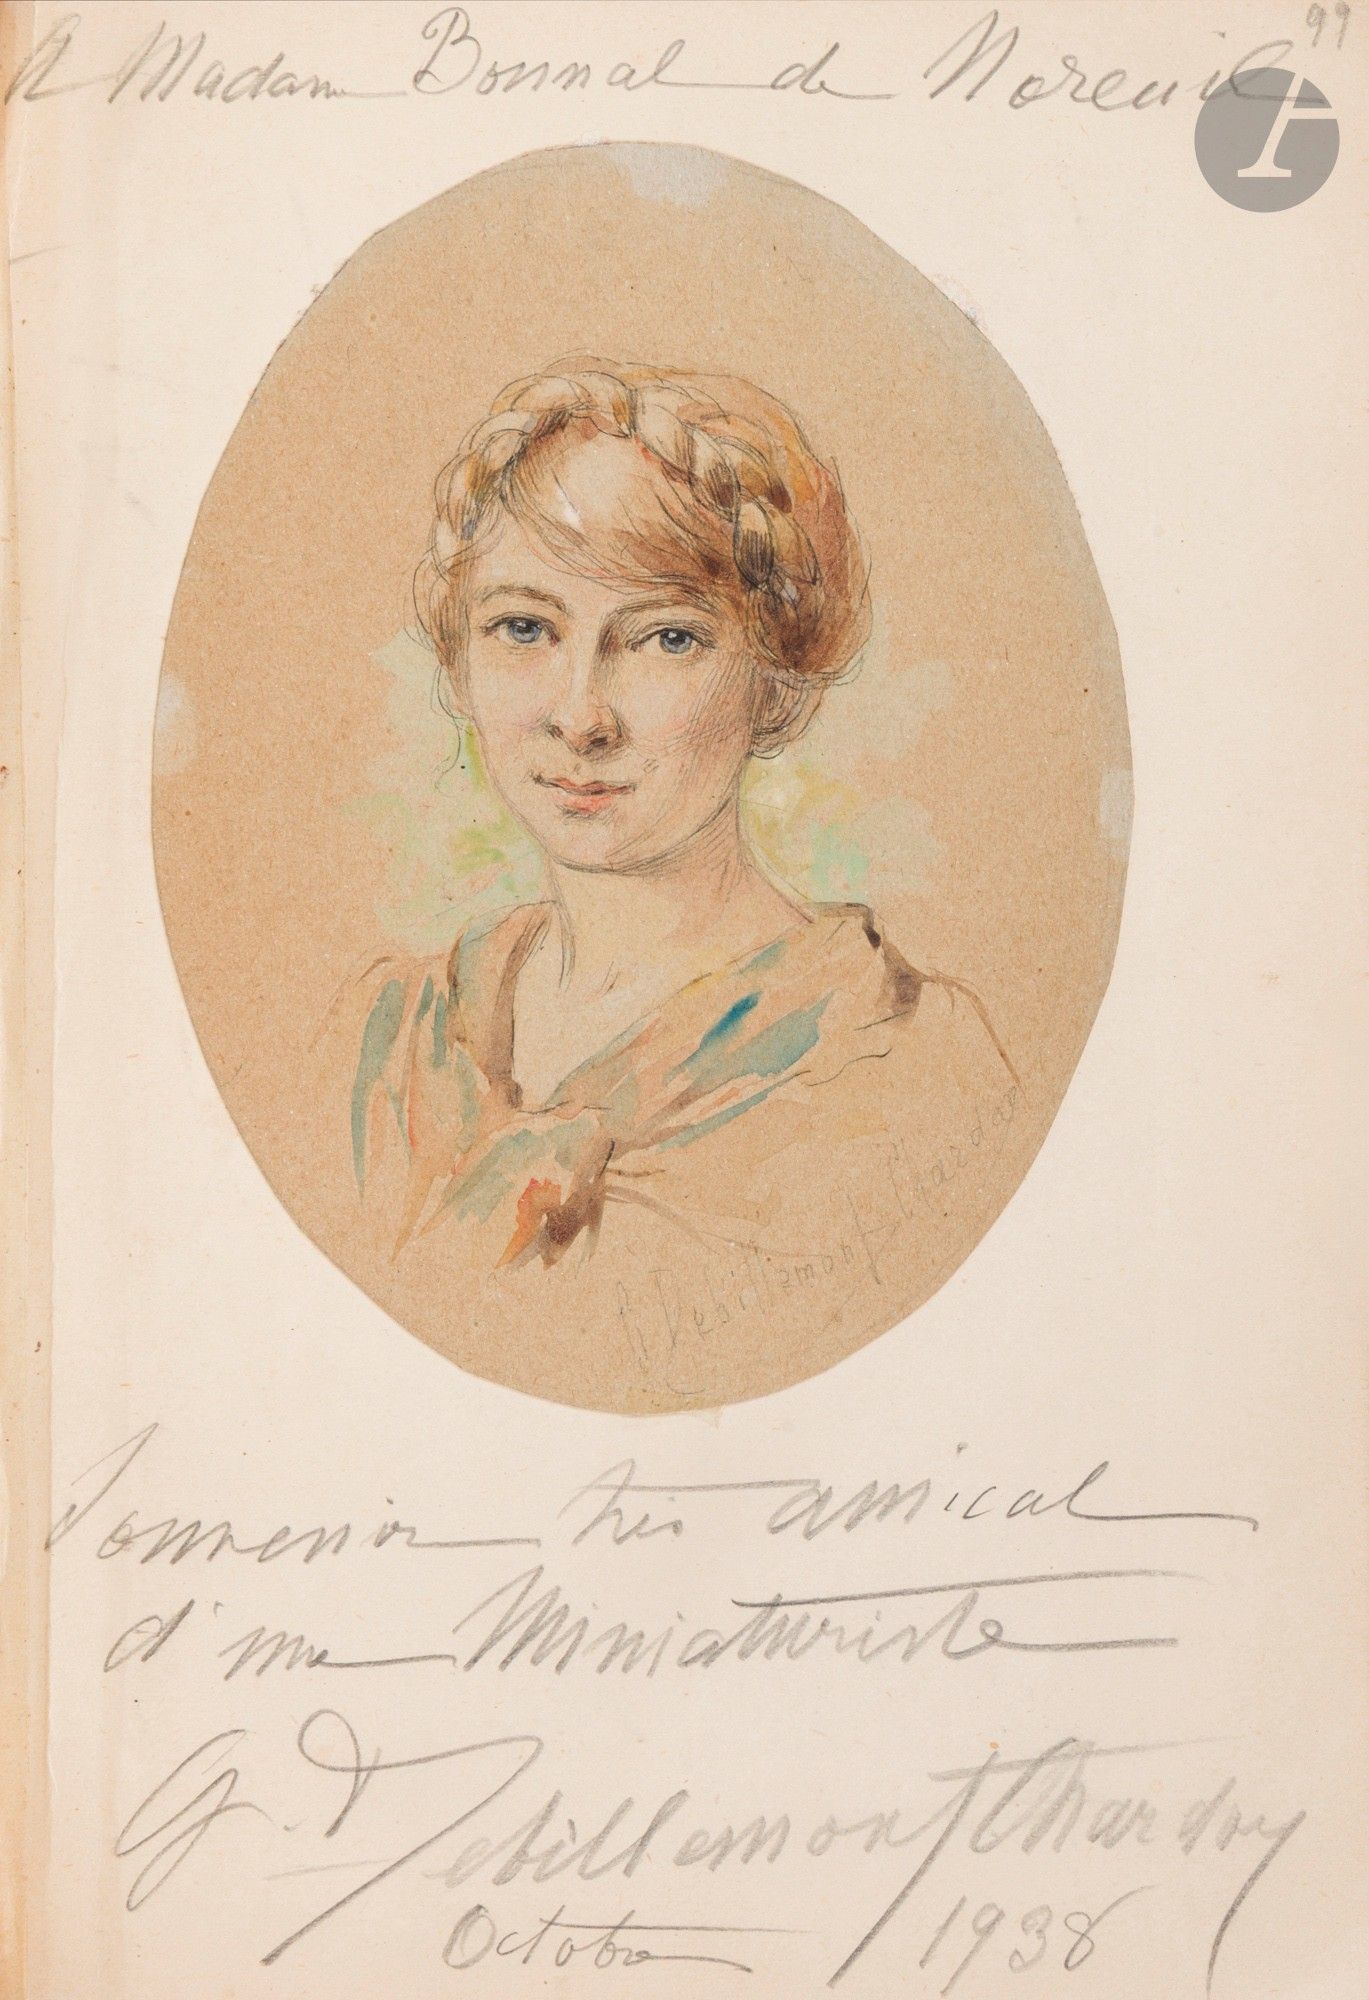 99
A Madame Bonnal de Noreuil
G Debillemont Chardon
Souvenir très amical
d'une Miniaturiste
G. Debillemont Chardon
Octobre 1938